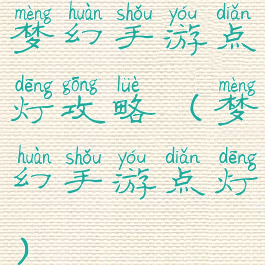 mèng huàn shǒu yóu diǎn
梦幻手游点
dēng gōng lüè mèng
灯攻略（梦
huàn shǒu yóu diǎn dēng
幻手游点灯
）